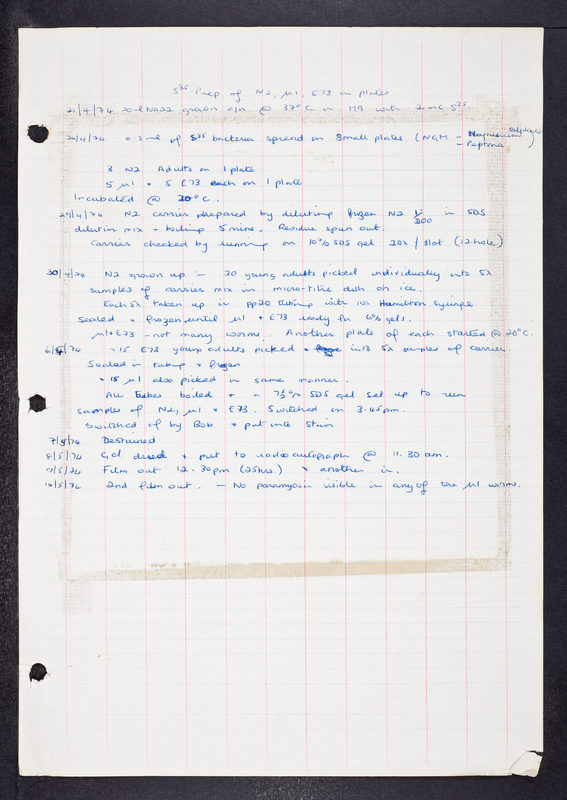 S35 Prep of N2, μ1, E73 on plates
23/4/74 20ml NA22 grown o/n @ 37°C in M9 with 2mc S35
24/4/74 0.5ml of S35 bacteria spread on small plates (NGM - Magnesium sulphate
- Peptone)
3 N2 Adults on 1 plate
5 μ1 + 5 E73 each on 1 plate
Incubated @ 20°C.
29/4/74 N2 carrier prepared by diluting frozen N2 1/200 in SDS
dilution mix + boiling 5 mins. Residue spun out.
Carrier checked by running on 10% SDS gel 20λ / slot (12 hole)
30/4/74 N2 grown up :- 30 young adults picked individually into 5λ
samples of carrier mix in micro-titre dish on ice.
Each 5λ taken up in pp20 tubing with 10λ Hamilton syringe
Sealed + frozen until μ1 + E73 ready for 6% gels.
μ1 + E73 - not many worms. Another plate of each started @ 20°C.
6/5/74 ~15 E73 young adults picked + in 13 5λ samples of carrier.
Sealed in tubing + frozen
~15 μ1 also picked in same manner.
All tubes boiled + a 7½% SDS gel set up to run
samples of N2, μ1 + E73. Switched on 3.45pm.
Switched of by Bob + put into Stain
7/5/74 Destained
8/5/74 Gel dried + put to radioautograph @ 11.30 am.
9/5/74 Film out 12.30pm (25hrs.) + another in.
16/5/74 2nd film out. - No paramyosin visible in any of the μ1 worms.